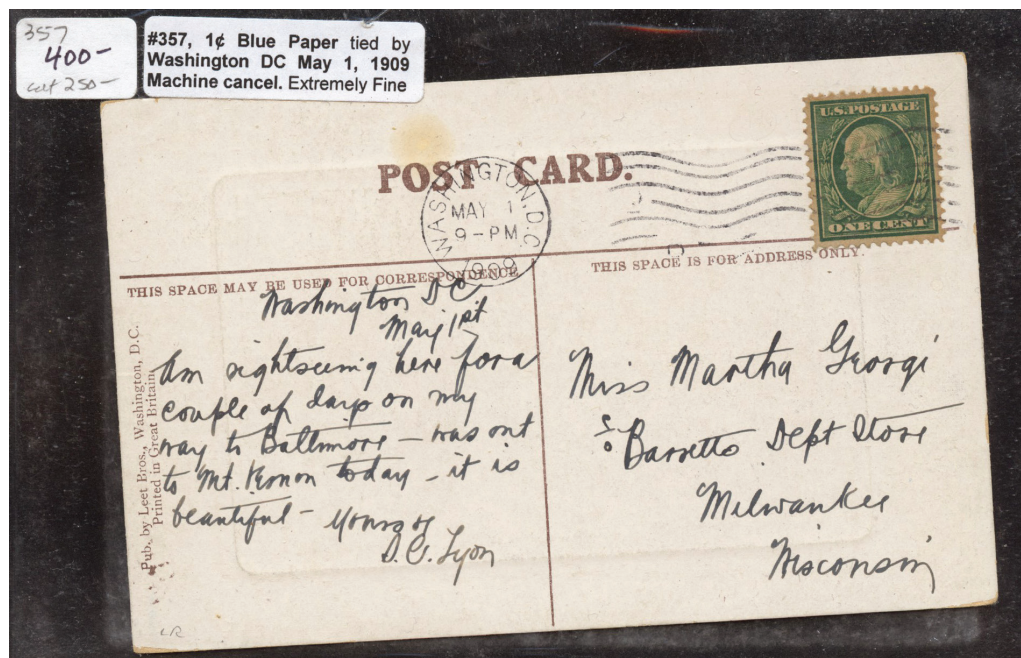 357
400-
cat 250-
#357, 1¢ Blue Paper tied by
Washington DC May 1, 1909
Machine cancel. Extremely Fine
U.S. POSTAGE
ONE CENT
POST CARD.
WASHINGTON, D.C.
MAY 1
9-PM
1909
THIS SPACE MAY BE USED FOR CORRESPONDENCE
THIS SPACE IS FOR ADDRESS ONLY.
Pub. by Leet Bros., Washington, D.C.
Printed in Great Britain
Washington DC
May 1st
Am sightseeing here for a
couple of days on my
way to Baltimore - was out
to Mt. Vernon today - it is
beautiful -
Yours as
D.C. Lyon
Miss Martha Georgi
c/o Barretts Dept Store
Milwaukee
Wisconsin
LR